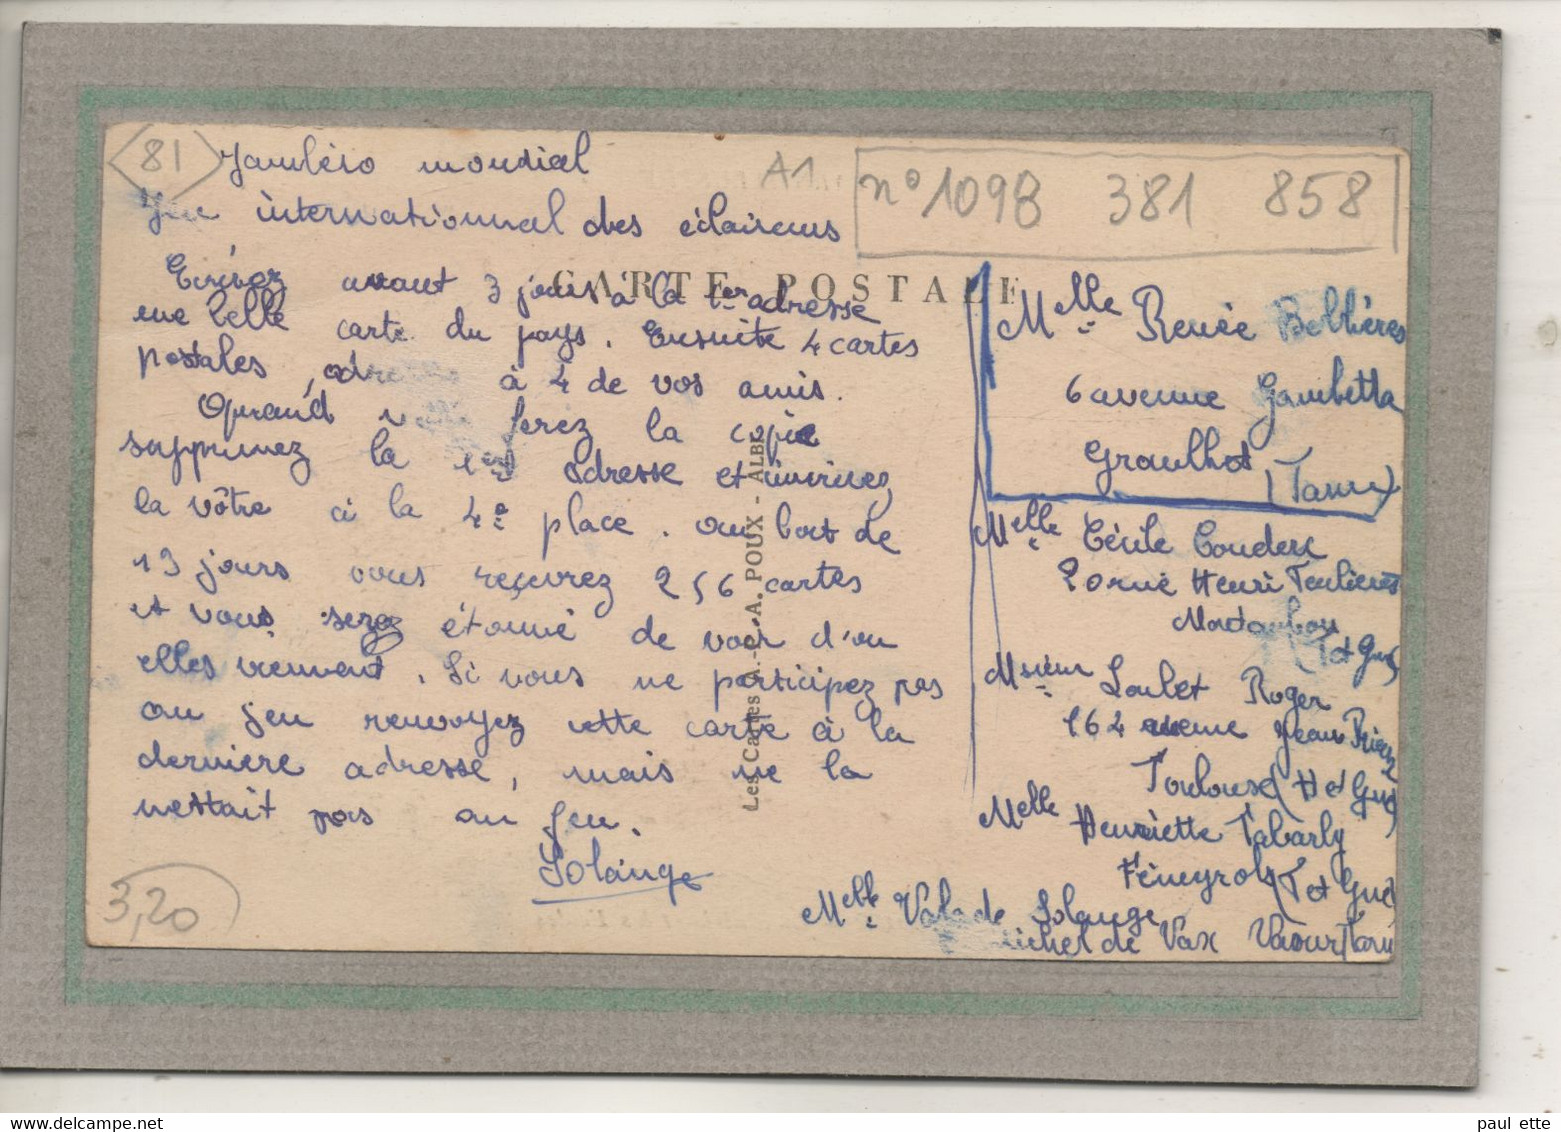 81
Jambéro mondial
A1
n° 1098 381 858
Jeu internationnal des éclaireus
CARTE POSTALE
Ecrivez avant 3 jours a la 1er adresse
une belle carte du pays. Ensuite 4 cartes
postales, adr à 4 de vos amis.
Quand v ferez la copie
supprimez la 1er adresse et inscrivez
la vôtre à la 4e place. au bout de
13 jours vous reçevrez 256 cartes
et vous sera étonné de voir d'ou
elles viennent. Si vous ne participez pas
au jeu renvoyez cette carte à la
derniere adresse, mais ne la
mettait pas au feu.
Solange
3,20
Les Cartes A.-C. A. POUX - ALBI
Melle Renée
6 avenue Gambetta
Graulhet
(Tarn)
Melle Cécile Couderc
20 rue Henri
(T et G
Msieur Loulet Roger
162 avenue Jean
Toulouse (H et G
Melle Henriette Tabarly
Féneyrols (T et G
Melle Valade Solange
de Vax Vaour (Tarn
paul ette